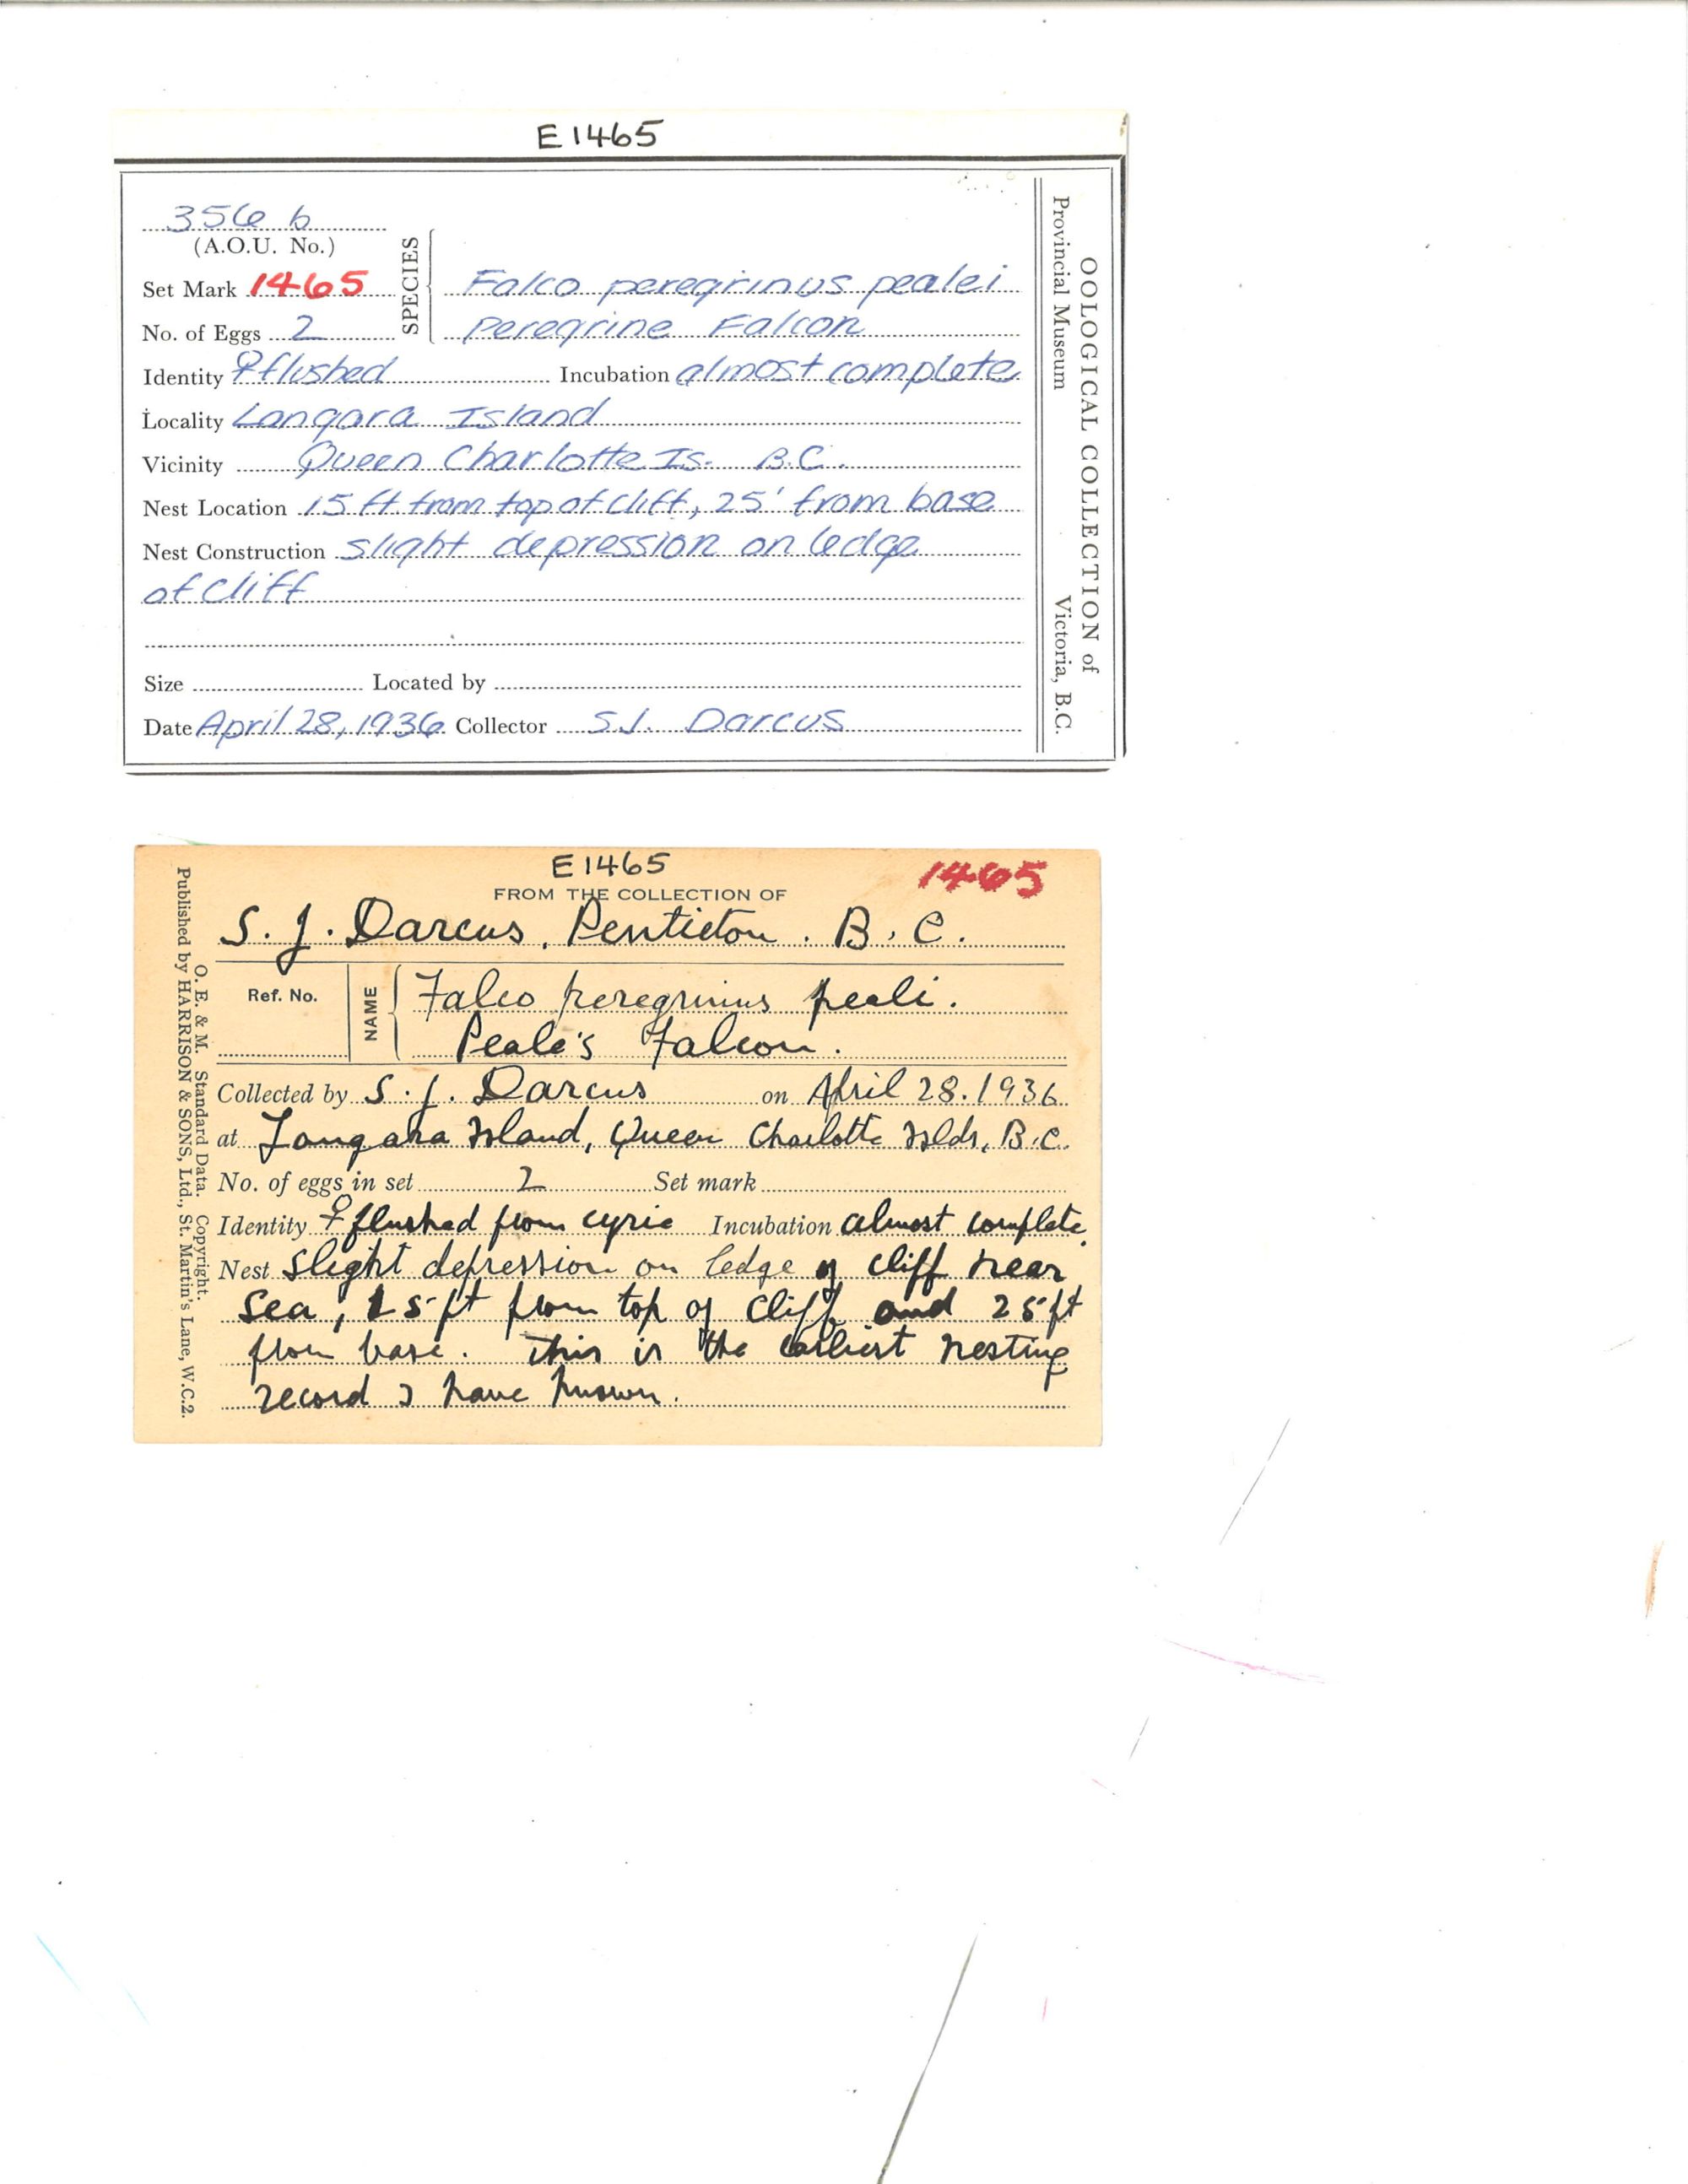 E1465
356 b
(A.O.U. No.)
Set Mark 1465
No. of Eggs 2
SPECIES
Falco peregrinus pealei
Peregrine Falcon
Identity ♀ flushed Incubation almost complete
Locality Langara Island
Vicinity Queen Charlotte Is. B.C.
Nest Location 15 ft from top of cliff, 25' from base
Nest Construction slight depression on ledge
of cliff
Size Located by
Date April 28, 1936 Collector S.J. Darcus
OOLOGICAL COLLECTION of
Provincial Museum Victoria, B.C.
E1465
1465
FROM THE COLLECTION OF
S. J. Darcus, Penticton. B.C.
Ref. No.
NAME
Falco peregrinus peali.
Peale's Falcon.
Collected by S. J. Darcus on April 28. 1936
at Langara Island, Queen Charlotte Islds, B.C.
No. of eggs in set 2 Set mark
Identity ♀ flushed from eyrie Incubation almost complete.
Nest slight depression on ledge of cliff near
sea, 15 ft from top of cliff and 25 ft
from base. This is the earliest nesting
record I have known.
O. E. & M. Standard Data. Copyright.
Published by HARRISON & SONS, Ltd., St. Martin's Lane, W.C.2.